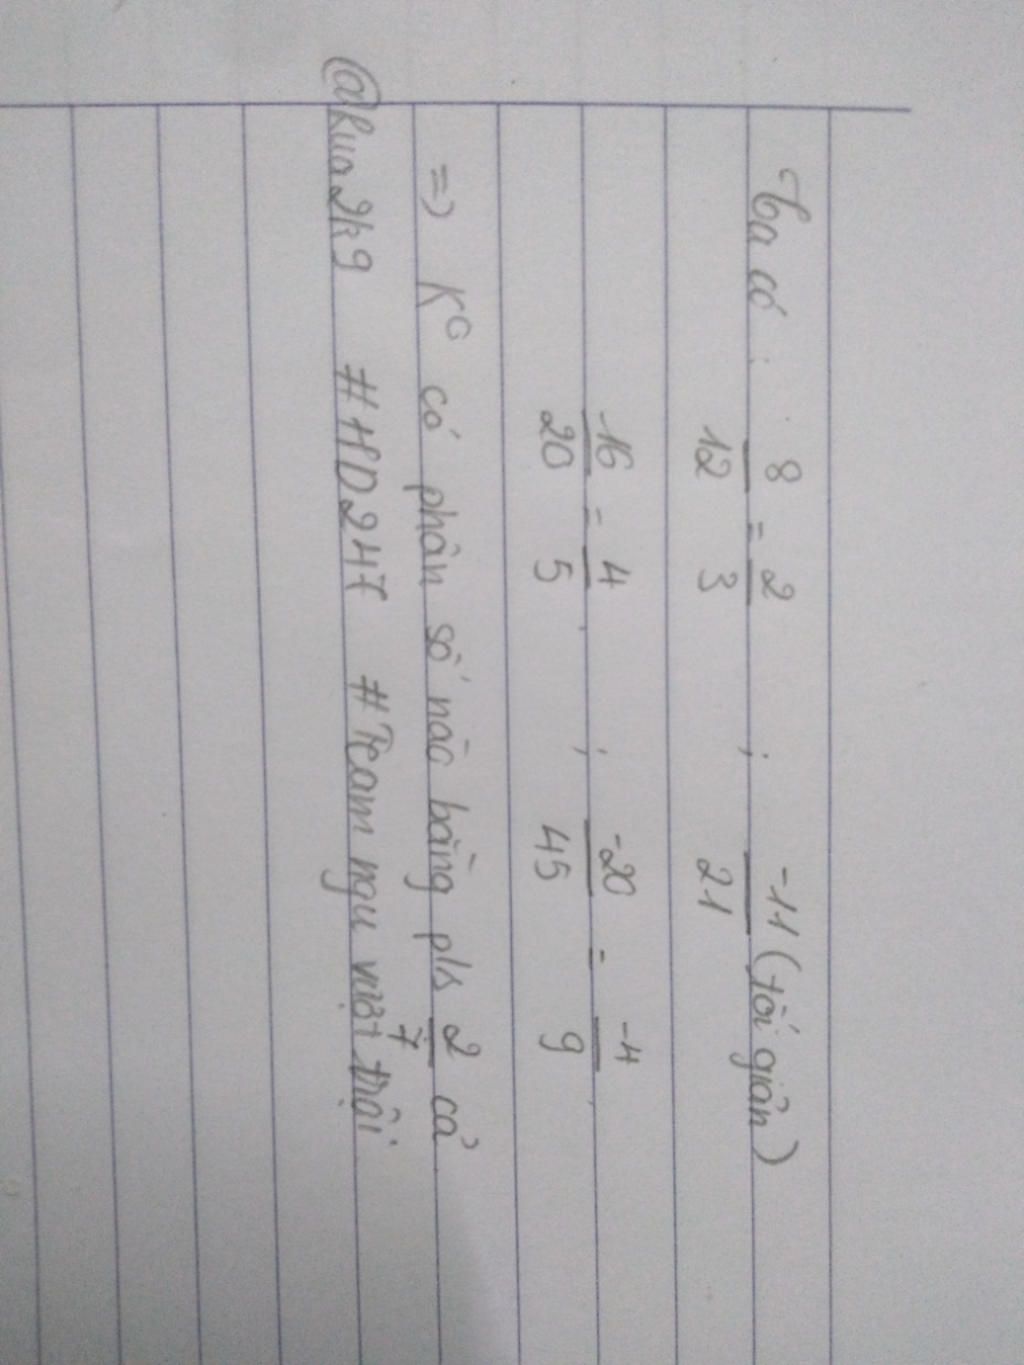 Ta có : 8/12 = 2/3 ; -11/21 (tối giản)
-16/20 = 4/5 ; -20/45 = -4/9
=> Ko có phân số nào bằng pls 2/7 cả
@Rua2k9 #HD247 #Team ngu vượt trội